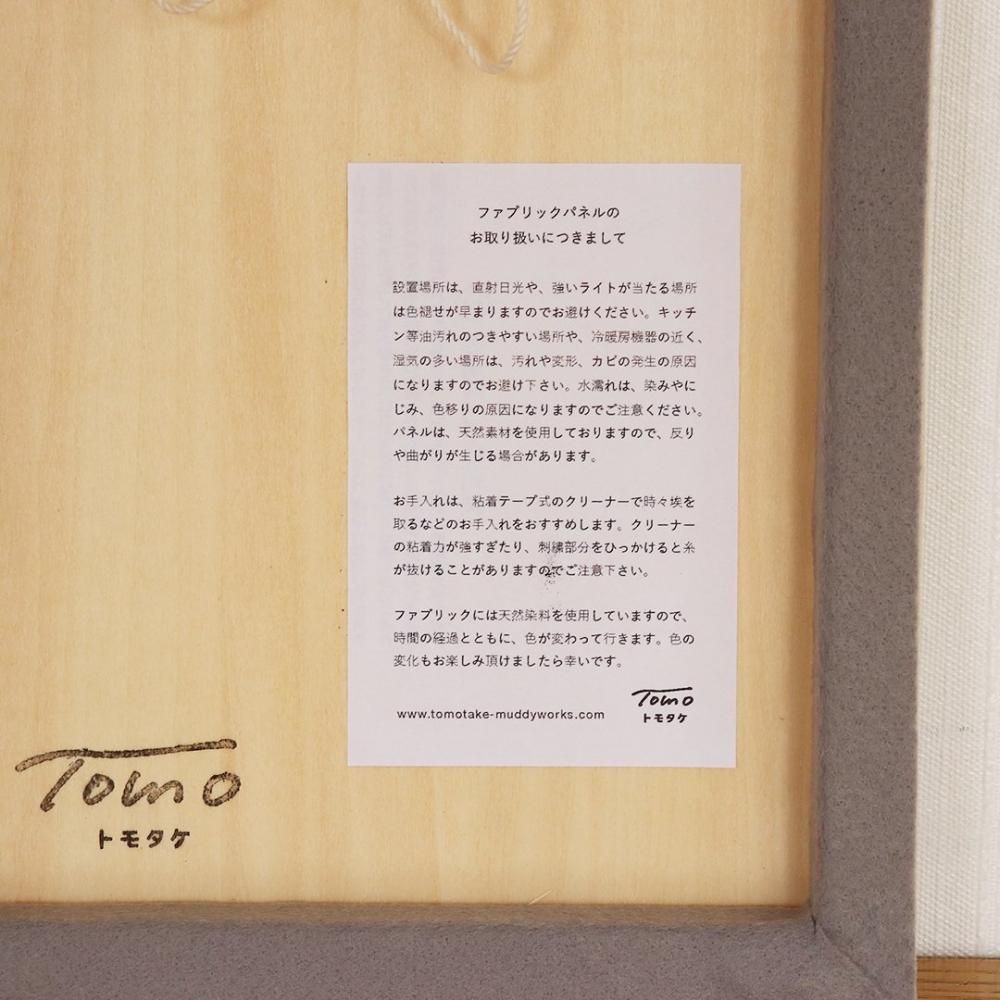 ファブリックパネルの
お取り扱いにつきまして
設置場所は、直射日光や、強いライトが当たる場所
は色褪せが早まりますのでお避けください。キッチ
ン等油汚れのつきやすい場所や、冷暖房機器の近く、
湿気の多い場所は、汚れや変形、カビの発生の原因
になりますのでお避け下さい。水濡れは、染みやに
じみ、色移りの原因になりますのでご注意ください。
パネルは、天然素材を使用しておりますので、反り
や曲がりが生じる場合があります。
お手入れは、粘着テープ式のクリーナーで時々埃を
取るなどのお手入れをおすすめします。クリーナー
の粘着力が強すぎたり、刺繍部分をひっかけると糸
が抜けることがありますのでご注意下さい。
ファブリックには天然染料を使用していますので、
時間の経過とともに、色が変わって行きます。色の
変化もお楽しみ頂けましたら幸いです。
www.tomotake-muddyworks.com
Tomo
トモタケ
Tomo
トモタケ